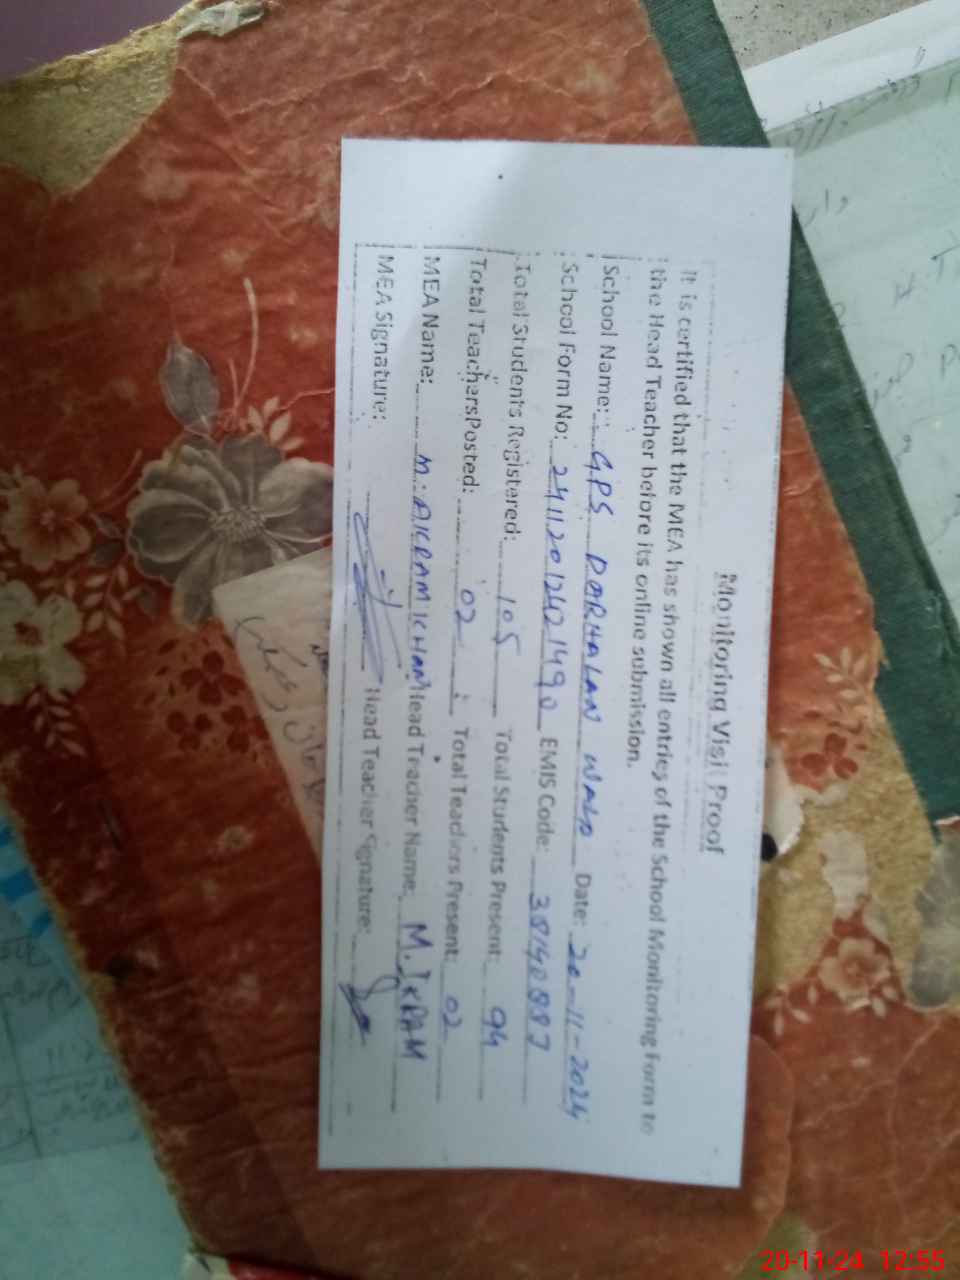 Monitoring Visit Proof
It is certified that the MEA has shown all entries of the School Monitoring Form to
the Head Teacher before its online submission.
School Name: GPS DARHALAN WALA Date: 20-11-2024
School Form No: 24112012421490 EMIS Code: 38140887
Total Students Registered: 105 Total Students Present: 94
Total Teachers Posted: 02 Total Teachers Present: 02
MEA Name: M. AKRAM KHAN Head Teacher Name: M. IKRAM
MEA Signature: Head Teacher Signature:
20-11-24 12:55